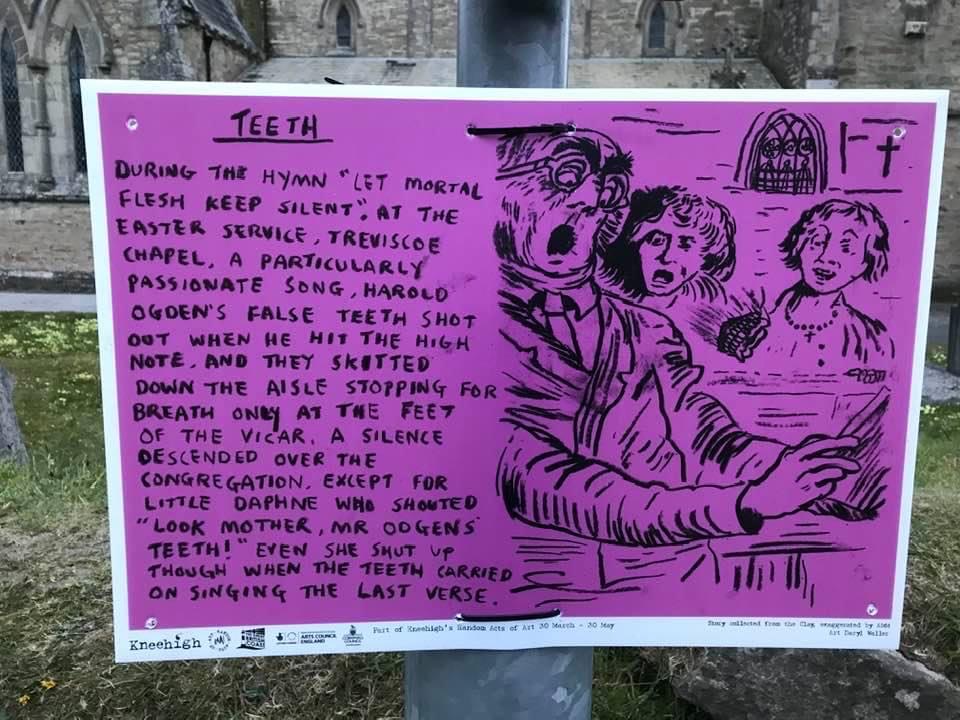 TEETH
DURING THE HYMN "LET MORTAL
FLESH KEEP SILENT", AT THE
EASTER SERVICE, TREVISCOE
CHAPEL, A PARTICULARLY
PASSIONATE SONG, HAROLD
OGDEN'S FALSE TEETH SHOT
OUT WHEN HE HIT THE HIGH
NOTE, AND THEY SKITTED
DOWN THE AISLE STOPPING FOR
BREATH ONLY AT THE FEET
OF THE VICAR. A SILENCE
DESCENDED OVER THE
CONGREGATION, EXCEPT FOR
LITTLE DAPHNE WHO SHOUTED
"LOOK MOTHER, MR ODGENS
TEETH!" EVEN SHE SHUT UP
THOUGH WHEN THE TEETH CARRIED
ON SINGING THE LAST VERSE.
Kneehigh
ARTS COUNCIL
ENGLAND
Part of Kneehigh's Random Acts of Art 30 March - 30 May
Story collected from the Clay, exaggerated by
Art Daryl Waller